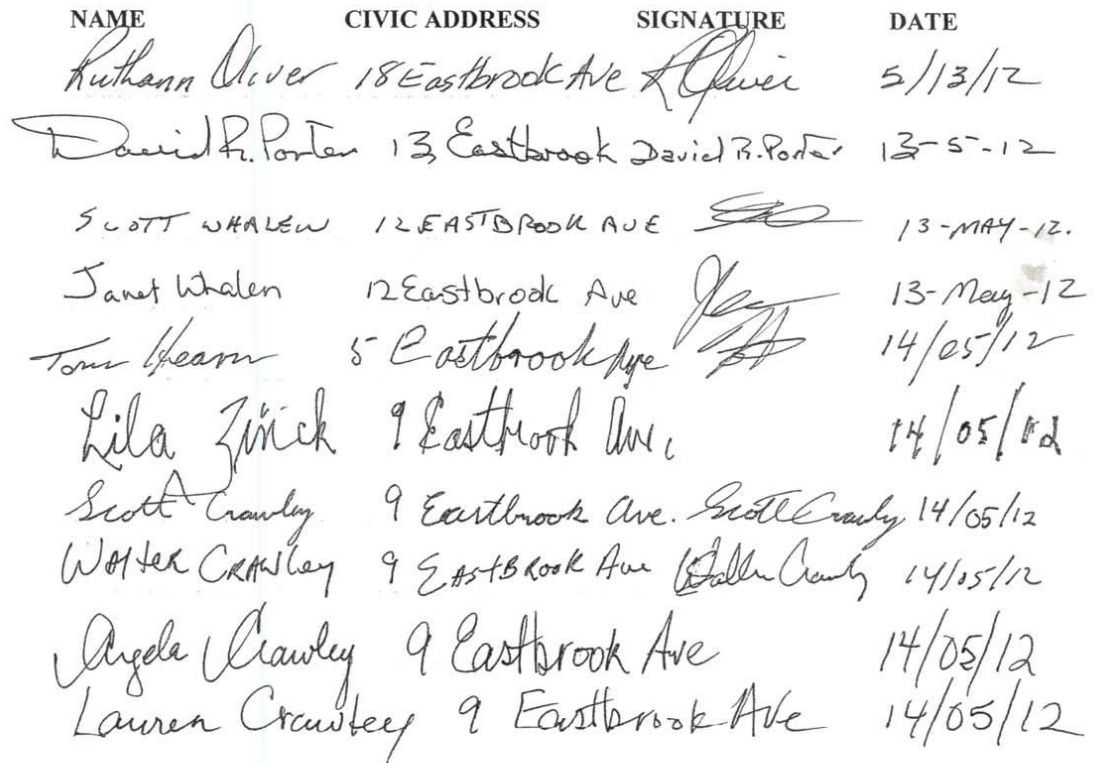 NAME CIVIC ADDRESS SIGNATURE DATE
Ruthann Oliver 18 Eastbrook Ave R Oliver 5/13/12
David R. Porter 13 Eastbrook David R. Porter 13-5-12
SCOTT WHALEN 12 EASTBROOK AVE 13-MAY-12.
Janet Whalen 12 Eastbrook Ave 13-May-12
Tom Hearn 5 Eastbrook Ave 14/05/12
Lila Zinck 9 Eastbrook Ave. 14/05/12
Scott Crawley 9 Eastbrook Ave. Scott Crawley 14/05/12
Walter Crawley 9 Eastbrook Ave Walter Crawley 14/05/12
Angela Crawley 9 Eastbrook Ave 14/05/12
Lauren Crawley 9 Eastbrook Ave 14/05/12